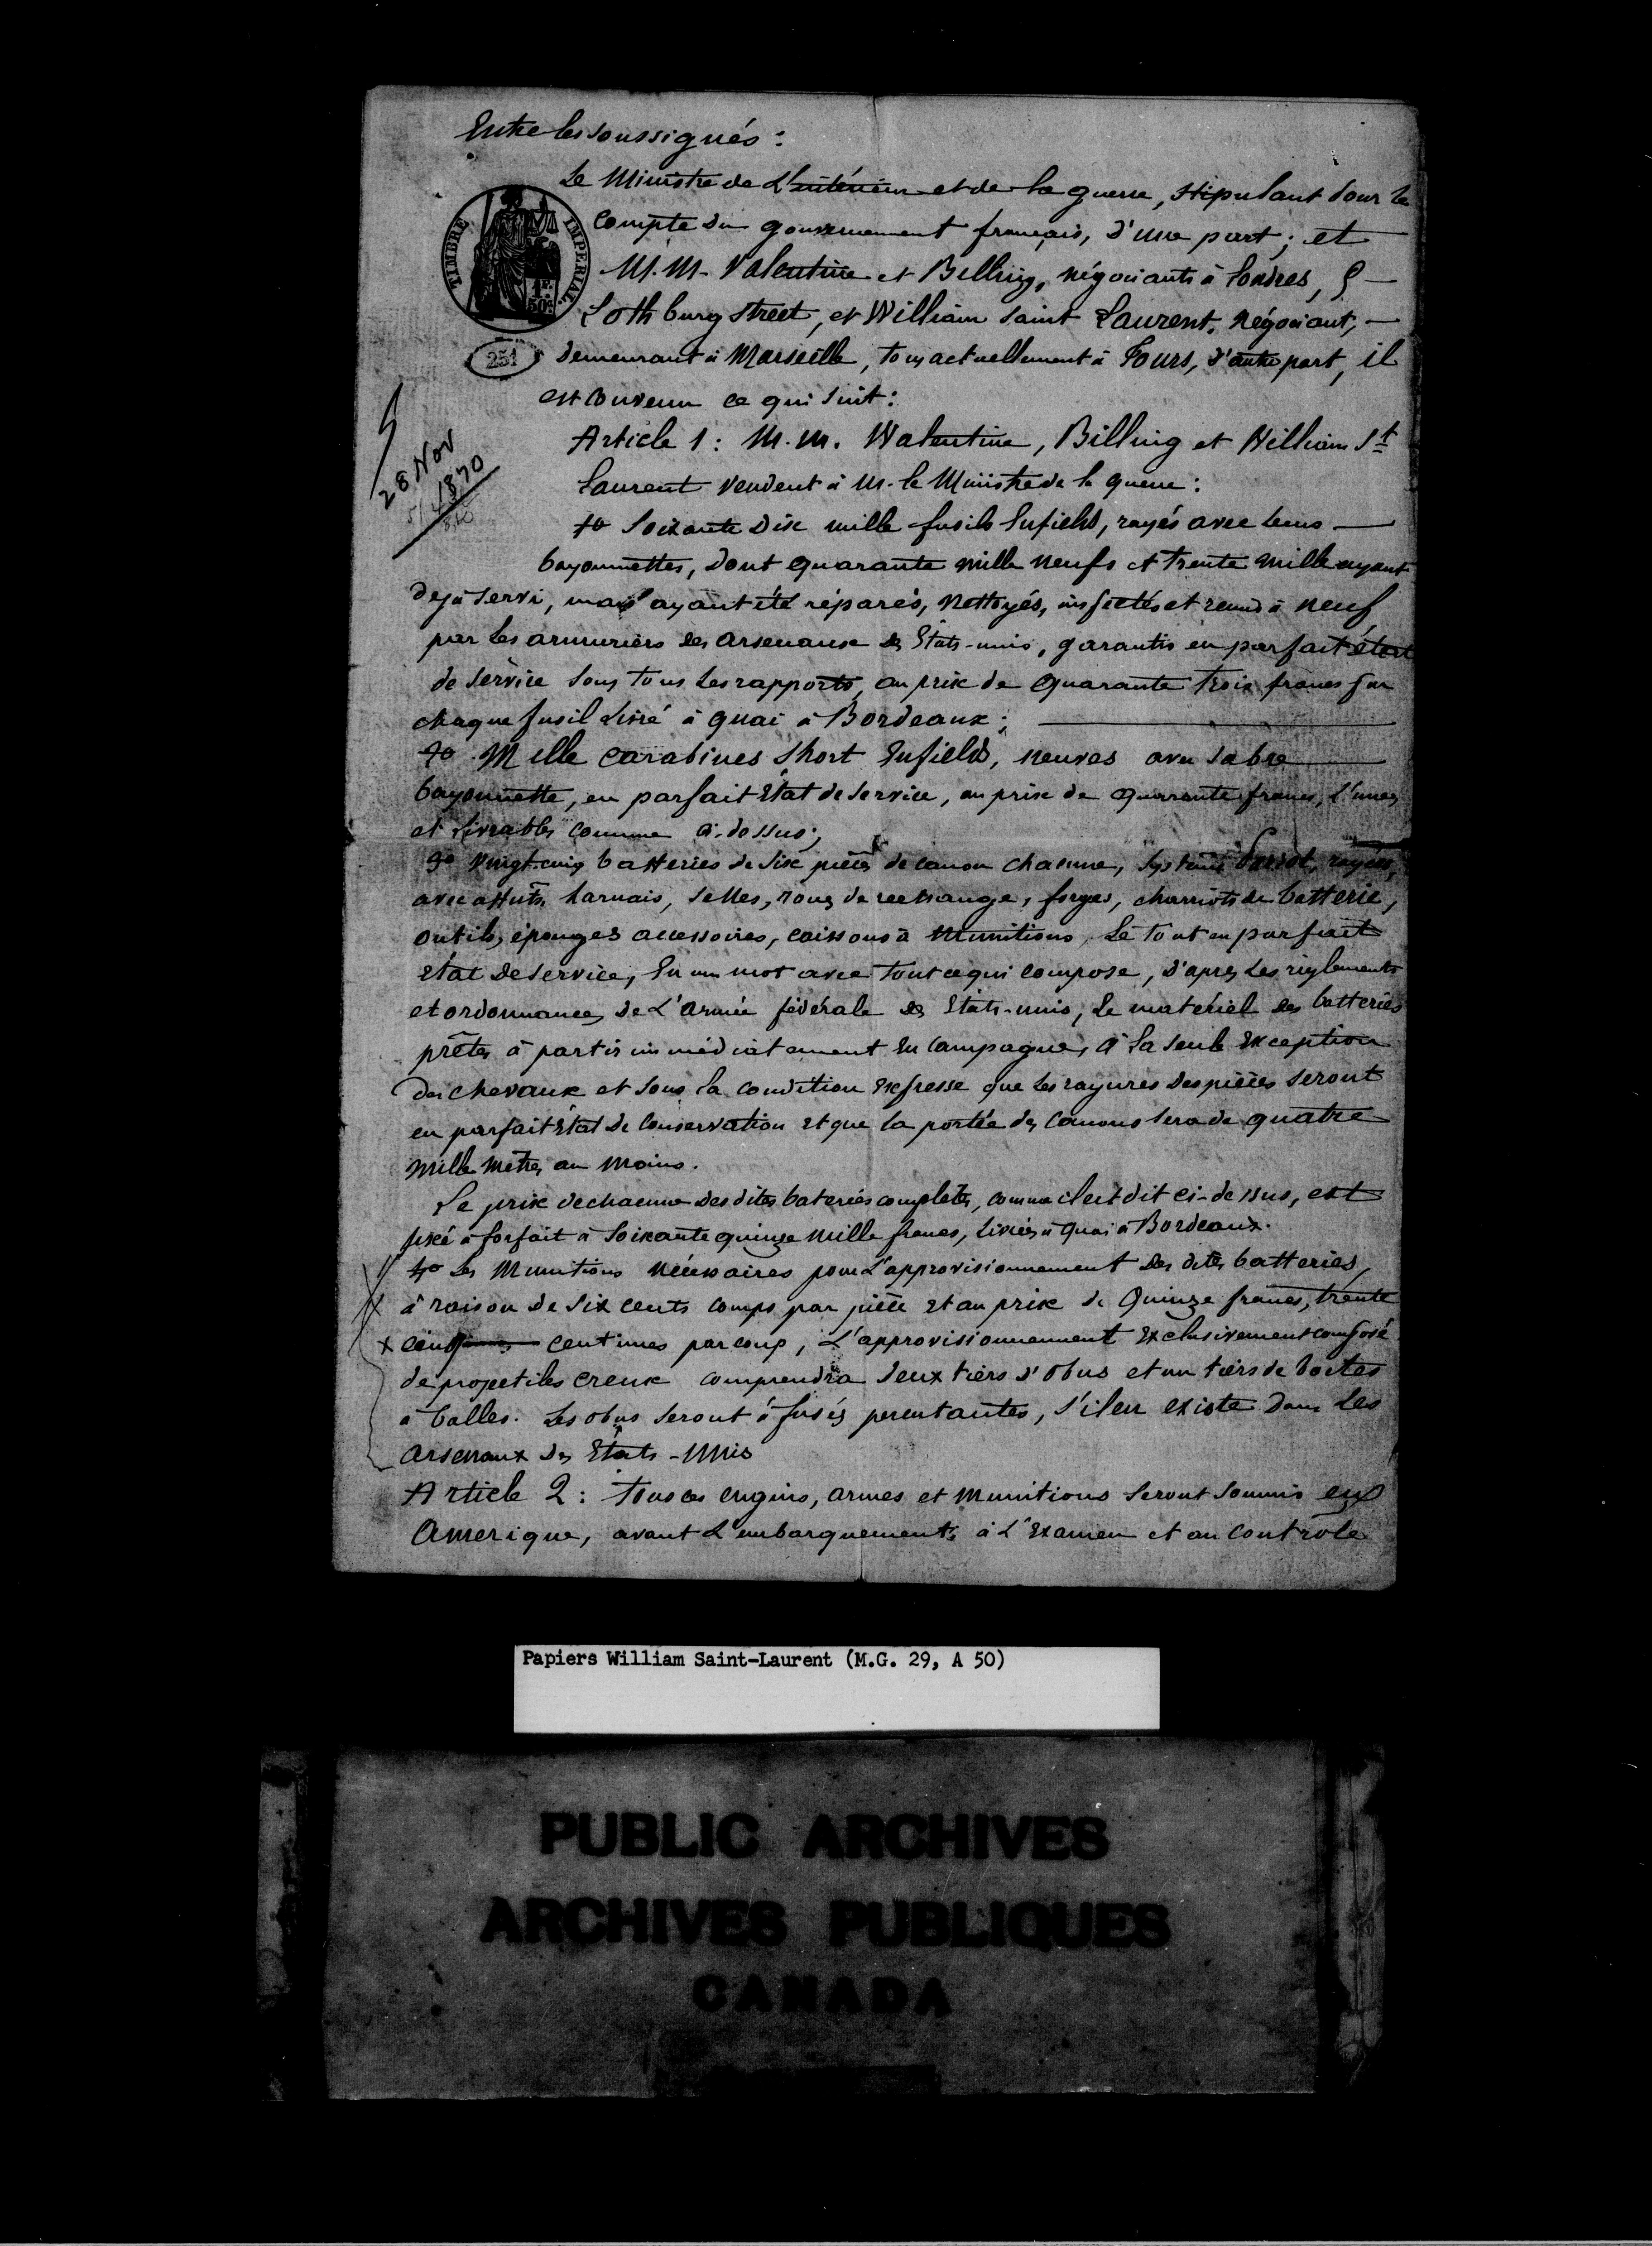 Entre les soussignés :
Le Ministre de L'intérieur et de la guerre, stipulant pour le
compte du gouvernement français, d'une part ; et
M.M. Valentine et Billing, négociants à Londres, 9
Lothburg street, et William Saint Laurent, négociant,
demeurant à Marseille, tous actuellement à Tours, d'autre part, il
est convenu ce qui suit :
TIMBRE IMPERIAL
1F. 50c.
251
28 Nov
1870
Article 1 : M.M. Walentine, Billing et William St
Laurent vendent à M. le Ministre de la guerre :
1o Soixante dix mille fusils Enfield, rayés avec leurs
bayonnettes, dont quarante mille neufs et trente mille ayant
déjà servi, mais ayant été réparés, nettoyés, insfectés et remis à neuf
par les armuriers des arsenaux des États-unis, garantis en parfait état
de service sous tous les rapports, au prix de quarante trois francs pour
chaque fusil livré à quai à Bordeaux ;
Mille carabines short Enfield, neuves avec sabre
bayonnette, en parfait état de service, au prix de quarante francs, l'une,
et livrables comme ci-dessus ;
3o Vingt-cinq batteries de six pièces de canon chacune, système rayées,
avec affûts, harnais, selles, roues de rechange, forges, charriots de batterie,
outils, éponges accessoires, caissons à munitions, le tout en parfait
état de service, en un mot avec tout ce qui compose, d'après les règlements
et ordonnances de L'armée fédérale des États-unis, le matériel des batteries
prêtes à partir immédiatement en campagne, à la seule exception
des chevaux et sous la condition expresse que les rayures des pièces seront
en parfait état de conservation et que la portée des canons sera de quatre
mille mètres au moins.
Le prix de chacune des dites bateries complètes, comme il est dit ci-dessus, est
fixé à forfait à soixante quinze mille francs, livrées à quai à Bordeaux.
4o Les munitions nécessaires pour l'approvisionnement des dites batteries,
à raison de six cents coups par pièce et au prix de quinze francs, trente
cinq centimes par coup, L'approvisionnement exclusivement composé
de projectiles creux comprendra deux tiers d'obus et un tiers de boites
à balles. Les obus seront à fusées percutantes, s'il en existe dans les
arsenaux des États-Unis
Article 2 : Tous ces engins, armes et munitions seront soumis en
Amerique, avant L'embarquement, à L'examen et au controle
Papiers William Saint-Laurent (M.G. 29, A 50)
PUBLIC ARCHIVES
ARCHIVES PUBLIQUES
CANADA